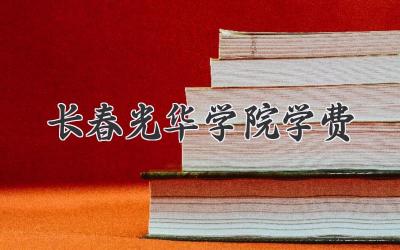 长春光华学院学费